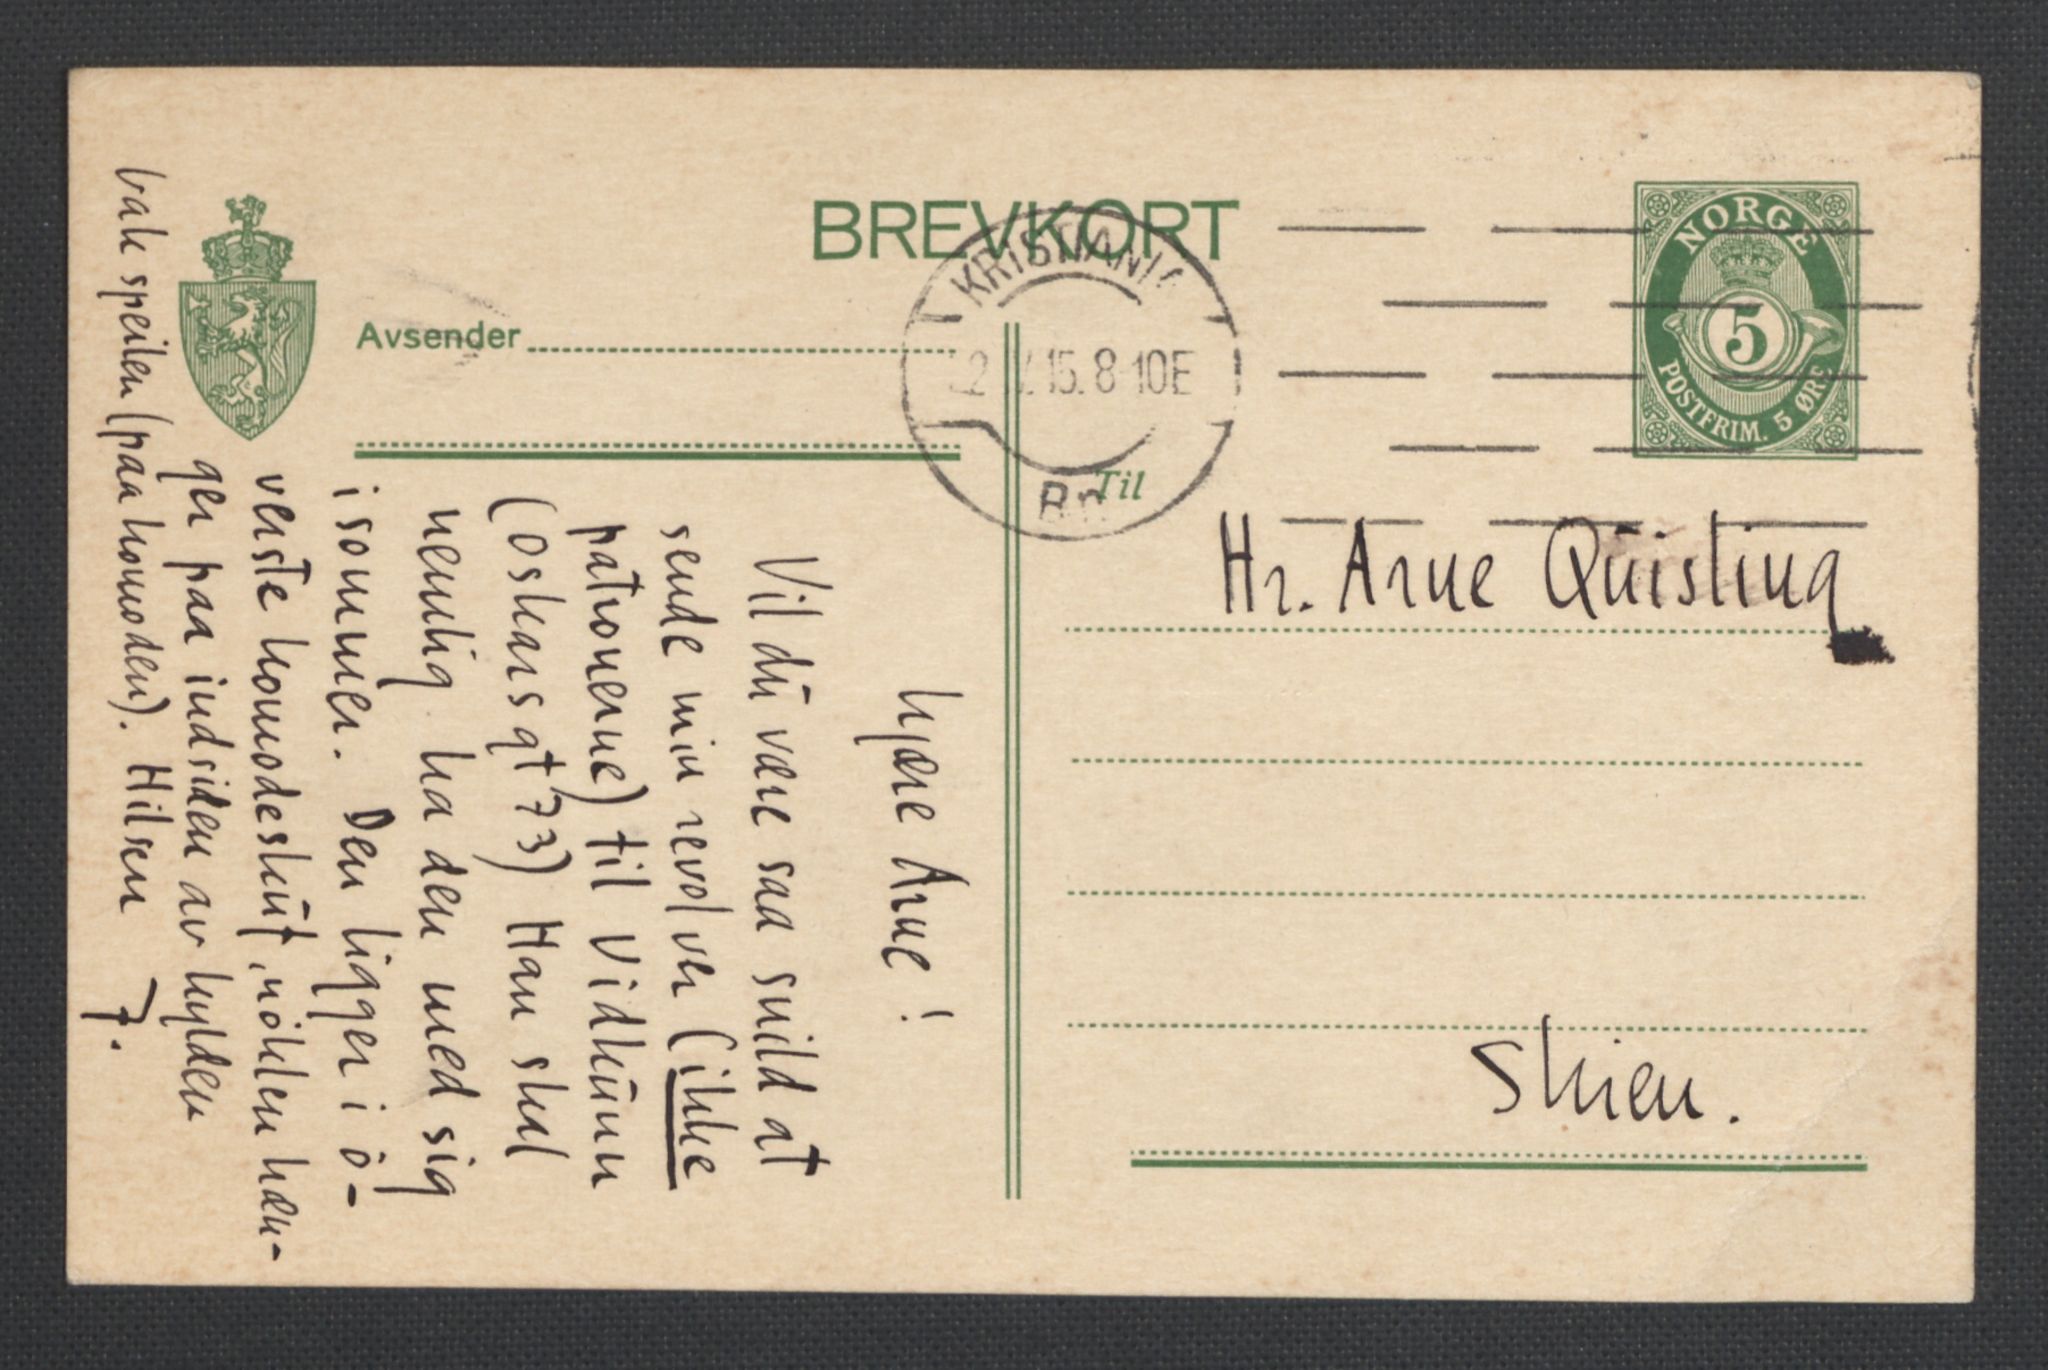 BREVKORT
Avsender
KRISTIANIA
15. 8-10E
Br.
NORGE
5
POSTFRIM. 5 ØRE
Til
Hr. Arne Quisling
Skien.
Kjære Arne!
Vil du være saa snild at
sende min revolver (ikke
patronerne) til Vidkunn
(Oskarsgt 73) Han skal
nemlig ha den med sig
i sommer. Den ligger i ö-
verste komodeskuf, nöklen hæn-
ger paa indsiden av hylden
bak speilen (paa komoden). Hilsen J.